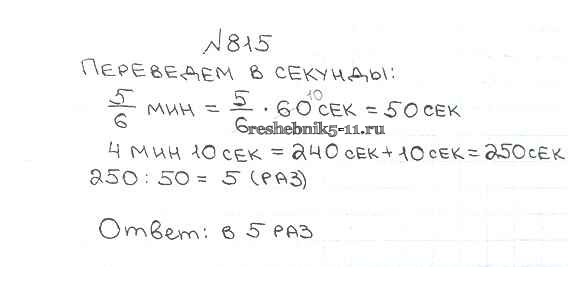 №815
ПЕРЕВЕДЕМ В СЕКУНДЫ:
5/6 МИН = 5/6 · 60 10 СЕК = 50 СЕК
reshebnik5-11.ru
4 МИН 10 СЕК = 240 СЕК + 10 СЕК = 250 СЕК
250 : 50 = 5 (РАЗ)
Ответ: В 5 РАЗ